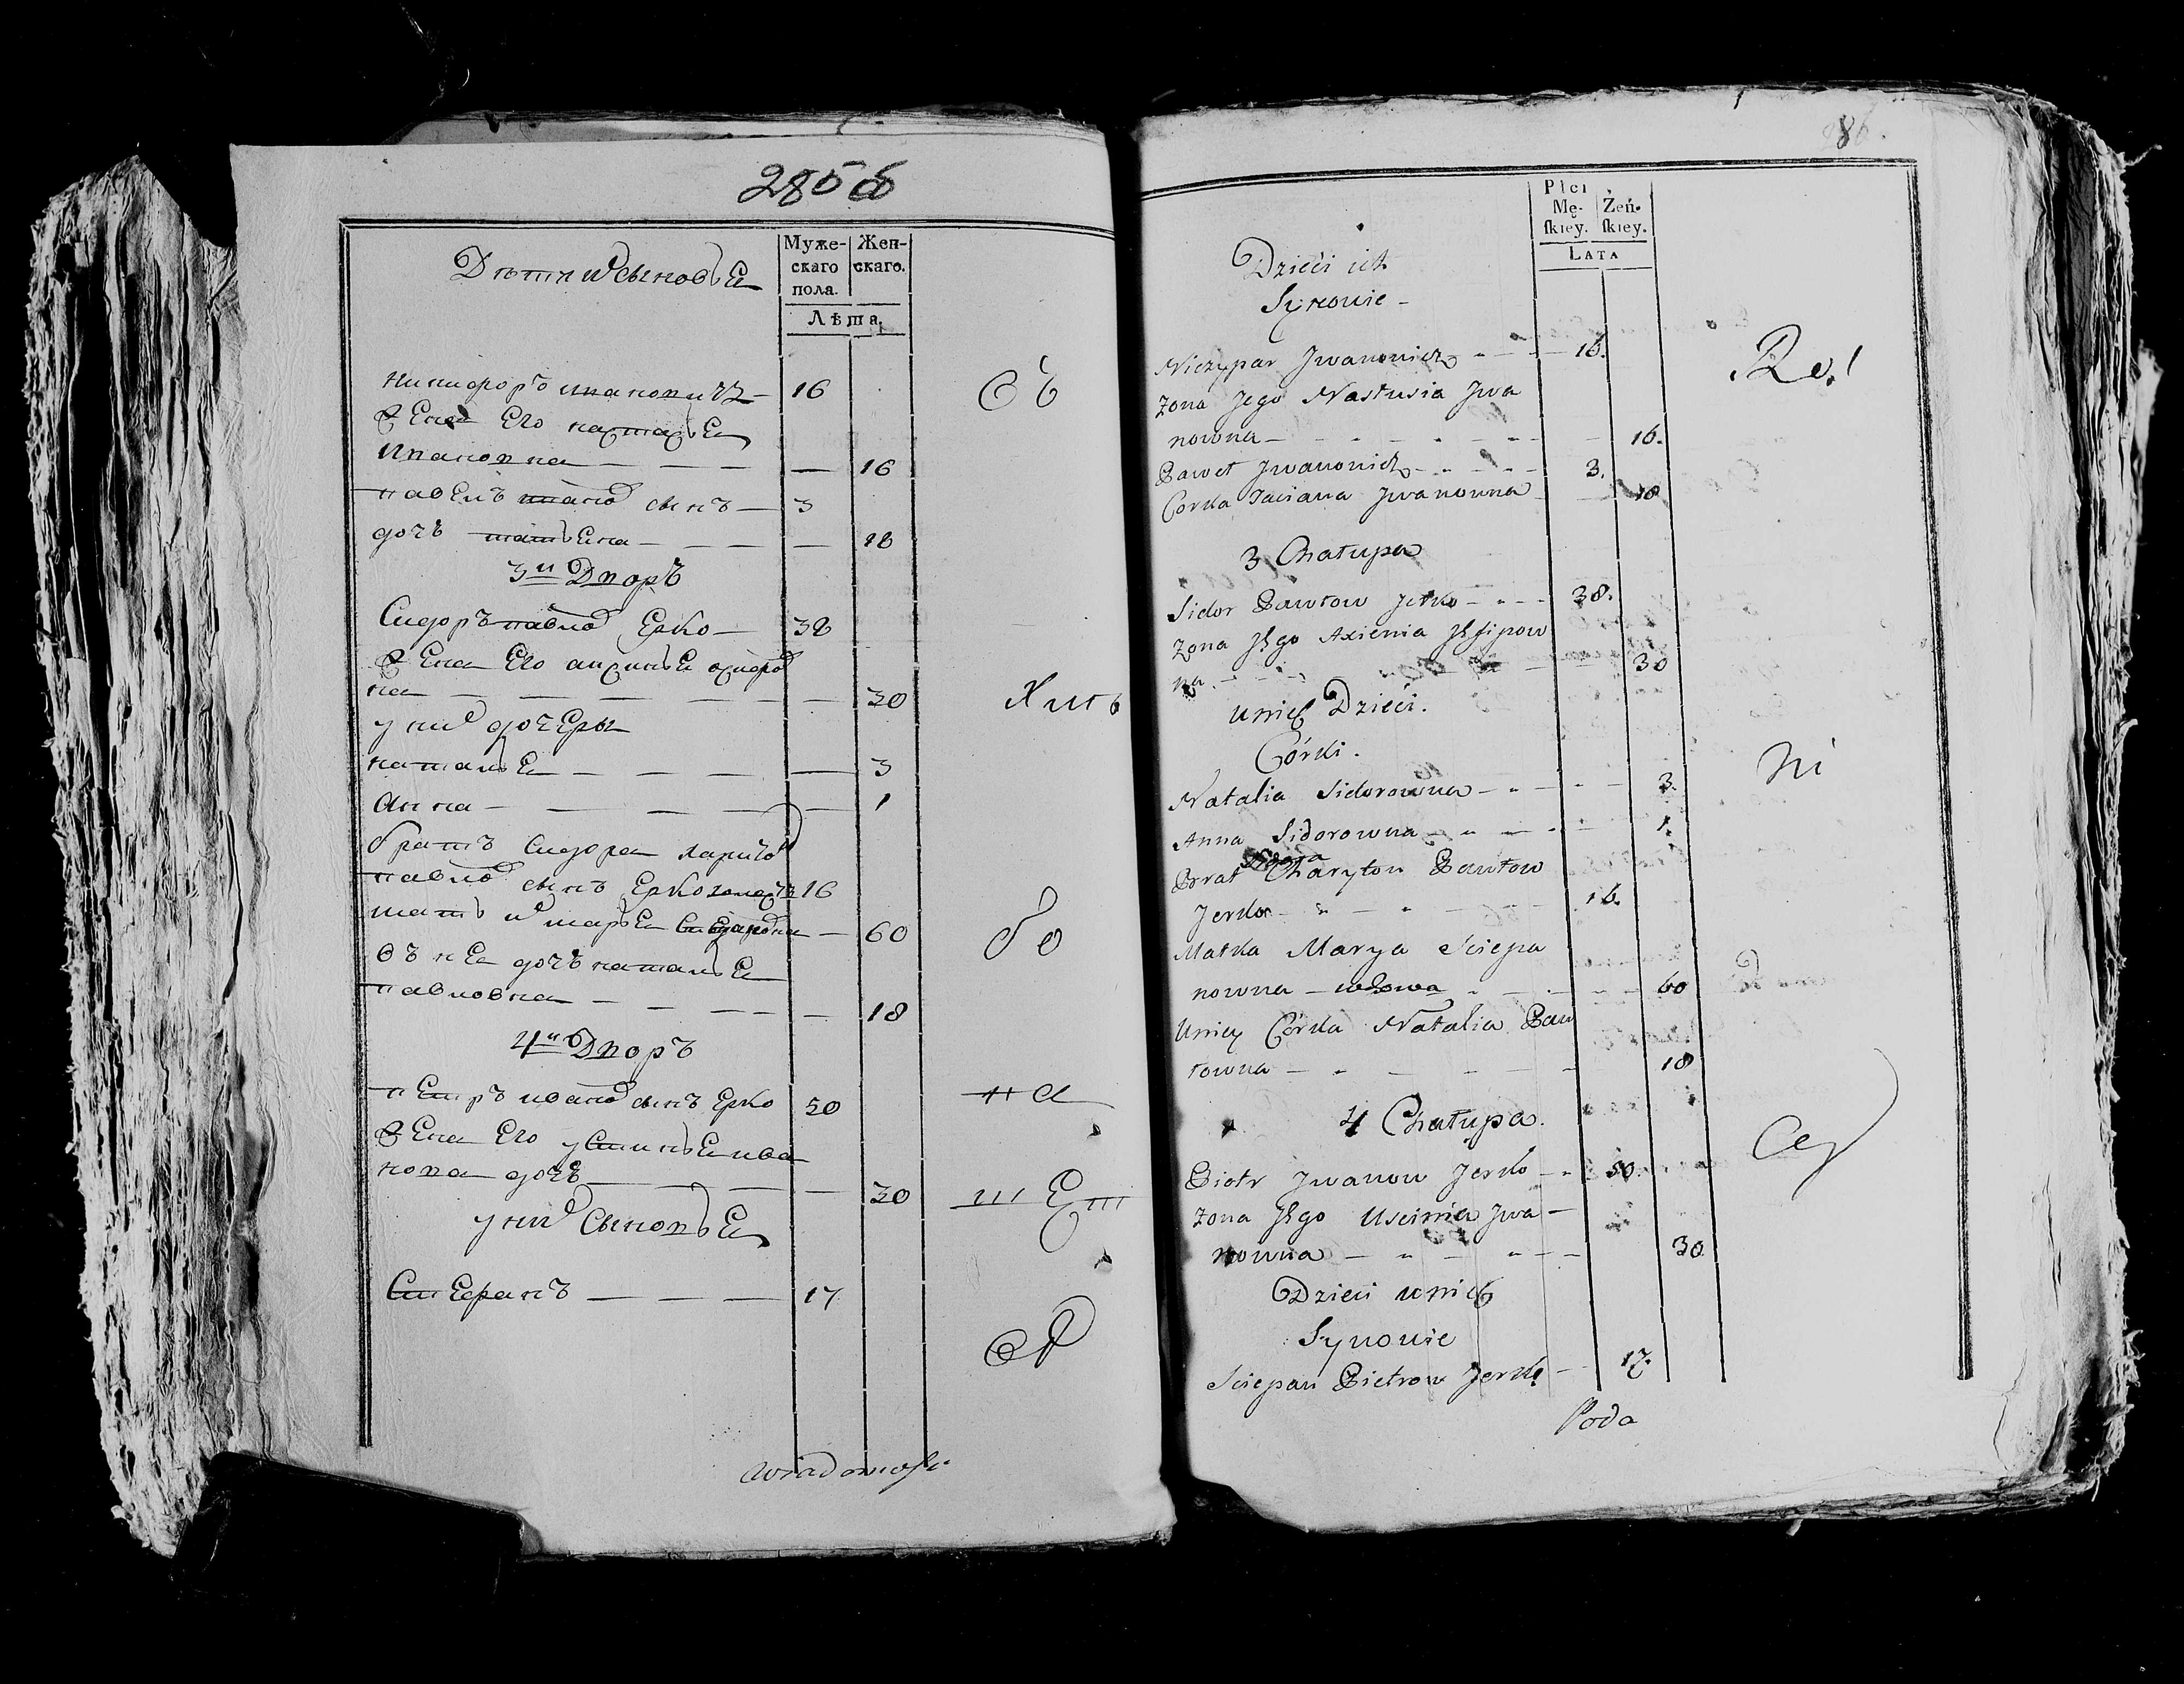 285 об
Муже-
скаго
пола.
Жен-
скаго.
Лѣта.
Дѣти ихъ сыновье
Никифоръ Ивановичь — 16
Жена Его настасье
Ивановна — 16
павелъ ивановъ сынъ — 3
дочь татьяна — 18
3й Дворъ
Сидоръ павловъ Ерко — 38
Жена Его аксинье
на — 30
у нихъ дочеры
наталье — 3
Анна — 1
братъ Сидора
павловъ сынъ Ерко 16
мать ихъ марье — 60
дочь наталье
павловна — 18
4й Дворъ
петръ ивановъ сынъ Ерко 50
Жена Его устинье ива
нова дочь — 30
у нихъ сыновье
Степанъ — 17
Об
бо
на
wiadomości
86.
Płci
Mę-
ſkiey.
Żeń-
ſkiey.
LATA
Dzieci ich
Synowie -
Niczypar Jwanowicz - - - 16.
Żona Jego Nastusia Jwa
nowna - - - 16.
Paweł Jwanowicz - - - 3.
Corka Taciana Jwanowna - 18
3 Chałupa
Sidor Pawłow Jerko - - - 38.
Żona Jego Axienia
na - - - 30
unich Dzieći.
Córki.
Natalia Sidorowna - - - 3.
Anna Sidorowna - - - 1.
Brat Charyton Pawłow
Jerko - - - 16.
Matka Marya Sciepa
nowna - wdowa - - - 60
Uniey Córka Natalia Paw
łowna - - - 18
4 Chałupa.
Piotr Jwanow Jerko - - 50.
Żona Jego Uscinia Jwa -
nowna - - - 30
Dzieci unich
Synowie
Sciepan Pietrow Jerko - 17.
Poda